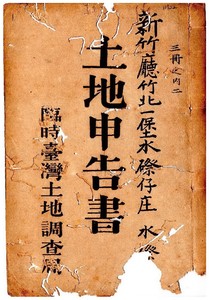 三冊之内二
新竹廳竹北一堡水磜仔庄 水
土地申告書
臨時臺灣土地調査局